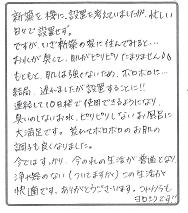 新築を機に、設置を考えていましたが、忙しい
日々で設置せず。
ですが、いざ新築の家に住んでみると…
お水が臭くて、肌がピリピリたまりません♪
もともと、肌は強くないため、ボロボロに…
結局、遅れましたが設置することに!!
連結して10日程で使用できるようになり、
臭いのしないお水、ピリピリしないお風呂に
大満足です。荒れてボロボロのお肌の
調子も良くなりました。
今ではすっかり、今のこの生活が普通となり
浄水器のない(つけてますが)この生活が
快適です。ありがとうございます。これからも
ヨロシクです!!